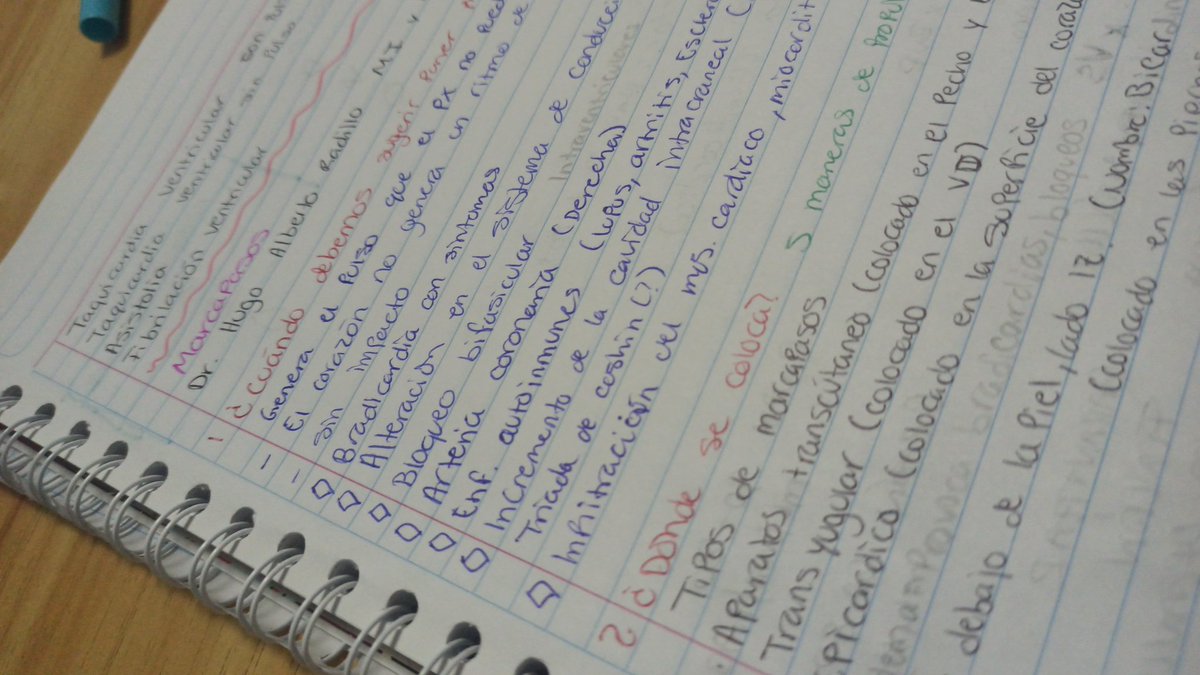 Taquicardia ventricular con Pulso
Taquicardia ventricular sin Pulso
Asistolia
Fibrilación ventricular
MarcaPasos
Dr. Hugo Alberto Radillo MI y
1 ¿Cuándo debemos sugerir Poner
- Genera el Pulso que el Px no Pued
- El corazón no genera un ritmo de
sin impacto
Bradicardia con sintomas
Alteración en el sistema de conducc
Bloqueo bifasicular Intraventriculares
Arteria coronaria (Derecha)
Enf. autoinmunes (lupus, artritis, Escler
Incremento de la cavidad intracraneal (
Triada de coshin (?)
Infiltración del mis. cardiaco, miocardit
2 ¿Donde se coloca?
Tipos de marcapasos 5 maneras de
Aparatos transcútaneo (colocado en el Pecho y
Trans yugular (colocado en el VD)
Epicardico (colocado en la superficie del coraz
debajo de la Piel, lado Iz. (Nombre: Bicard
(colocado en las Pier